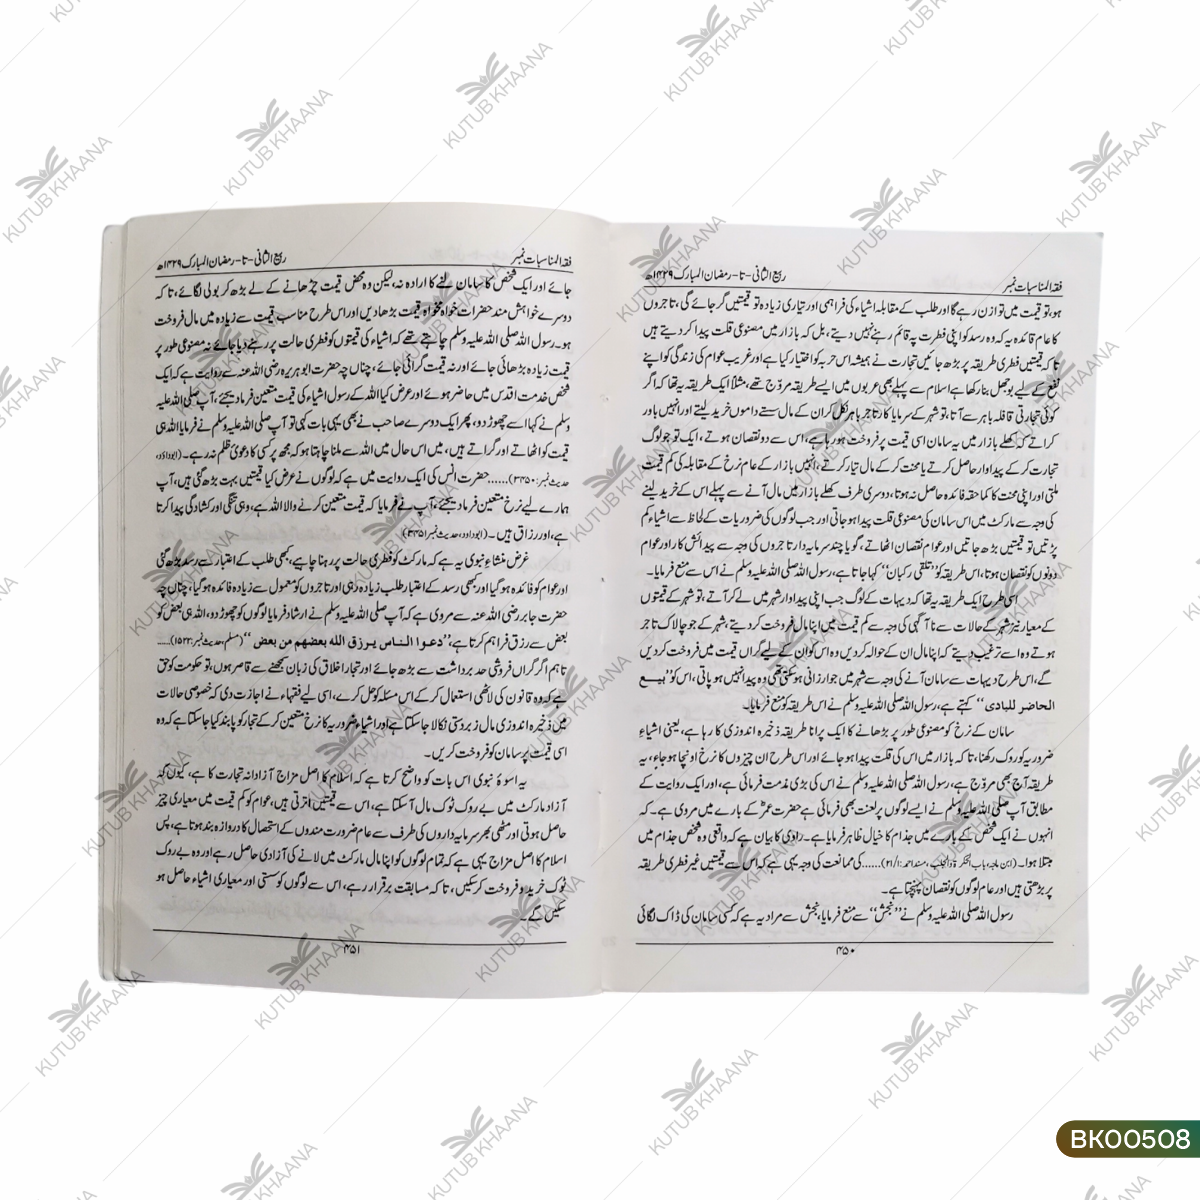 فقہ المناسبات نمبر
ربیع الثانی - تا - رمضان المبارک ۱۴۲۹ھ
ہو، تو قیمت میں توازن رہے گا اور طلب کے مقابلہ اشیاء کی فراہمی اور تیاری زیادہ تو قیمتیں گر جائے گی، تاجروں
کا عام قائدہ یہ کہ وہ رسد کو اپنی فطرت پہ قائم رہنے نہیں دیتے، بل کہ بازار میں مصنوعی قلت پیدا کر دیتے ہیں
تا کہ قیمتیں فطری طریقہ پر بڑھ جائیں تجارت نے ہمیشہ اس حربہ کو اختیار کیا ہے اور غریب عوام کی زندگی کو اپنے
نفع کے لیے بوجھل بنا رکھا ہے اسلام سے پہلے بھی عربوں میں ایسے طریقہ مروّج تھے، مثلاً ایک طریقہ یہ تھا کہ اگر
کوئی تجارتی قافلہ باہر سے آتا، تو شہر کے سرمایا کار تاجر باہر نکل کر ان کے مال سستے داموں خرید لیتے اور انہیں باور
کراتے کہ کھلے بازار میں یہ سامان اسی قیمت پر فروخت ہو رہا ہے، اس سے دو نقصان ہوتے، ایک تو جو لوگ
تجارت کر کے پیداوار حاصل کرتے یا محنت کر کے مال تیار کرتے، انہیں بازار کے عام نرخ کے مقابلہ کی کم قیمت
ملتی اور اپنی محنت کا کما حقہ فائدہ حاصل نہ ہوتا، دوسری طرف کھلے بازار میں مال آنے سے پہلے اس کے خرید لینے
کی وجہ سے مارکٹ میں اس سامان کی مصنوعی قلت پیدا ہو جاتی اور جب لوگوں کی ضروریات کے لحاظ سے اشیاء کم
پڑتیں تو قیمتیں بڑھ جاتیں اور عوام نقصان اٹھاتے، گویا چند سرمایہ دار تاجروں کی وجہ سے پیدائش کار اور عوام
دونوں کو نقصان ہوتا، اس طریقہ کو ”تلقی رکبان“ کہا جاتا ہے، رسول اللہ صلی اللہ علیہ وسلم نے اس سے منع فرمایا۔
اسی طرح ایک طریقہ یہ تھا کہ دیہات کے لوگ جب اپنی پیداوار شہر میں لے کر آتے، تو شہر کے قیمتوں
کے معیار نیز شہر کے حالات سے نا آگہی کی وجہ سے کم قیمت میں اپنا مال فروخت کر دیتے، شہر کے جو چالاک تاجر
ہوتے وہ اسے ترغیب دیتے کہ اپنا مال ان کے حوالہ کر دیں وہ اس کو ان کے لیے گراں قیمت میں فروخت کر دیں
گے، اس طرح دیہات سے سامان آنے کی وجہ سے شہر میں جو ارزانی ہو سکتی تھی وہ پیدا نہیں ہو پاتی، اس کو ”بیع
الحاضر للبادی“ کہتے ہے، رسول اللہ صلی اللہ علیہ وسلم نے اس طریقہ کو منع فرمایا۔
سامان کے نرخ کو مصنوعی طور پر بڑھانے کا ایک پرانا طریقہ ذخیرہ اندوزی کا رہا ہے، یعنی اشیاءِ
ضروریہ کو روک رکھنا، تا کہ بازار میں اس کی قلت پیدا ہو جائے اور اس طرح ان چیزوں کا نرخ اونچا ہو جاے، یہ
طریقہ آج بھی مروّج ہے، رسول اللہ صلی اللہ علیہ وسلم نے اس کی بڑی مذمت فرمائی ہے، اور ایک روایت کے
مطابق آپ صلی اللہ علیہ وسلم نے ایسے لوگوں پر لعنت بھی فرمائی ہے حضرت عمرؓ کے بارے میں مروی ہے۔ کہ
انہوں نے ایک شخص کے بارے میں جذام کا خیال ظاہر فرمایا ہے۔ راوی کا بیان ہے کہ واقعی وہ شخص جذام میں
مبتلا ہوا۔ (ابن ماجہ، باب الحکر ۃ والجلب، مسند احمد: ۲۱/۱)......کی ممانعت کی وجہ یہی ہے کہ اس سے قیمتیں غیر فطری طریقہ
پر بڑھتی ہیں اور عام لوگوں کو نقصان پہنچتا ہے۔
رسول اللہ صلی اللہ علیہ وسلم نے ”نجش“ سے منع فرمایا، نجش سے مراد یہ ہے کہ کسی سامان کی ڈاک لگائی
۴۵۰
فقہ المناسبات نمبر
ربیع الثانی - تا - رمضان المبارک ۱۴۲۹ھ
جائے اور ایک شخص کا سامان لینے کا ارادہ نہ، لیکن وہ محض قیمت چڑھانے کے لے بڑھ کر بولی لگائے، تا کہ
دوسرے خواہش مند حضرات خواہ مخواہ قیمت بڑھا دیں اور اس طرح مناسب قیمت سے زیادہ میں مال فروخت
ہو۔ رسول اللہ صلی اللہ علیہ وسلم چاہتے تھے کہ اشیاء کی قیمتوں کو فطری حالت پر رہنے دیا جائے نہ مصنوعی طور پر
قیمت زیادہ بڑھائی جائے اور نہ قیمت گرائی جائے، چناں چہ حضرت ابو ہریرہ رضی اللہ عنہ سے روایت ہے کہ ایک
شخص خدمت اقدس میں حاضر ہوئے اور عرض کیا اللہ کے رسول اشیاء کی قیمت متعین فرما دیجئے، آپ صلی اللہ علیہ
وسلم نے کہا اسے چھوڑ دو، پھر ایک دوسرے صاحب نے بھی یہی بات کہی تو آپ صلی اللہ علیہ وسلم نے فرمایا اللہ ہی
قیمت کو اٹھاتے اور گراتے ہیں، میں اس حال میں اللہ سے ملنا چاہتا ہو کہ مجھ پر کسی کا دعویٰ ظلم نہ رہے۔ (ابو داؤد،
حدیث نمبر: ۳۴۵۰)......حضرت انس کی ایک روایت میں ہے کہ لوگوں نے عرض کیا قیمتیں بہت بڑھ گئی ہیں، آپ
ہمارے لیے نرخ متعین فرما دیجئے، آپ نے فرمایا کہ قیمت متعین کرنے والا اللہ ہے، وہی تنگی اور کشادگی پیدا کرتا
ہے، اور رزاق ہیں۔ (ابو داود، حدیث نمبر ۳۴۵۱)۔
غرض منشاءِ نبوی یہ ہے کہ مارکٹ کو فطری حالت پر رہنا چاہیے، کبھی طلب کے اعتبار سے رسد بڑھ گئی
اور عوام کو فائدہ ہو گیا اور کبھی رسد کے اعتبار طلب زیادہ رہی اور تاجروں کو معمول سے زیادہ فائدہ ہو گیا، چناں چہ
حضرت جابر رضی اللہ عنہ سے مروی ہے کہ آپ صلی اللہ علیہ وسلم نے ارشاد فرمایا لوگوں کو چھوڑ دو، اللہ ہی بعض کو
بعض سے رزق فراہم کرتا ہے، ”دعوا الناس یرزق اللہ بعضهم من بعض “(مسلم، حدیث نمبر: ۱۵۲۲)......
تاہم اگر گراں فروشی حد برداشت سے بڑھ جائے اور تجار اخلاق کی زبان سمجھنے سے قاصر ہوں، تو حکومت کو حق
ہے کہ وہ قانون کی لاٹھی استعمال کر کے اس مسئلہ کو حل کرے، اسی لیے فقہاء نے اجازت دی کہ خصوصی حالات
میں ذخیرہ اندوزی مال زبردستی نکالا جا سکتا ہے اور اشیاءِ ضروریہ کا نرخ متعین کر کے تجار کو پابند کیا جا سکتا ہے کہ وہ
اسی قیمت پر سامان کو فروخت کریں۔
یہ اسوۂ نبوی اس بات کو واضح کرتا ہے کہ اسلام کا اصل مزاج آزادانہ تجارت کا ہے، کیوں کہ
آزاد مارکٹ میں بے روک ٹوک مال آ سکتا ہے، اس سے قیمتیں اترتی ہیں، عوام کو کم قیمت میں معیاری چیز
حاصل ہوتی اور مٹھی بھر سرمایہ داروں کی طرف سے عام ضرورت مندوں کے استحصال کا دروازہ بند ہوتا ہے، پس
اسلام کا اصل مزاج یہی ہے کہ تمام لوگوں کو اپنا مال مارکٹ میں لانے کی آزادی حاصل رہے اور وہ بے روک
ٹوک خرید و فروخت کر سکیں، تا کہ مسابقت برقرار رہے، اس سے لوگوں کو سستی اور معیاری اشیاء حاصل ہو
سکیں گے۔
۴۵۱
KUTUB KHAANA
BK00508